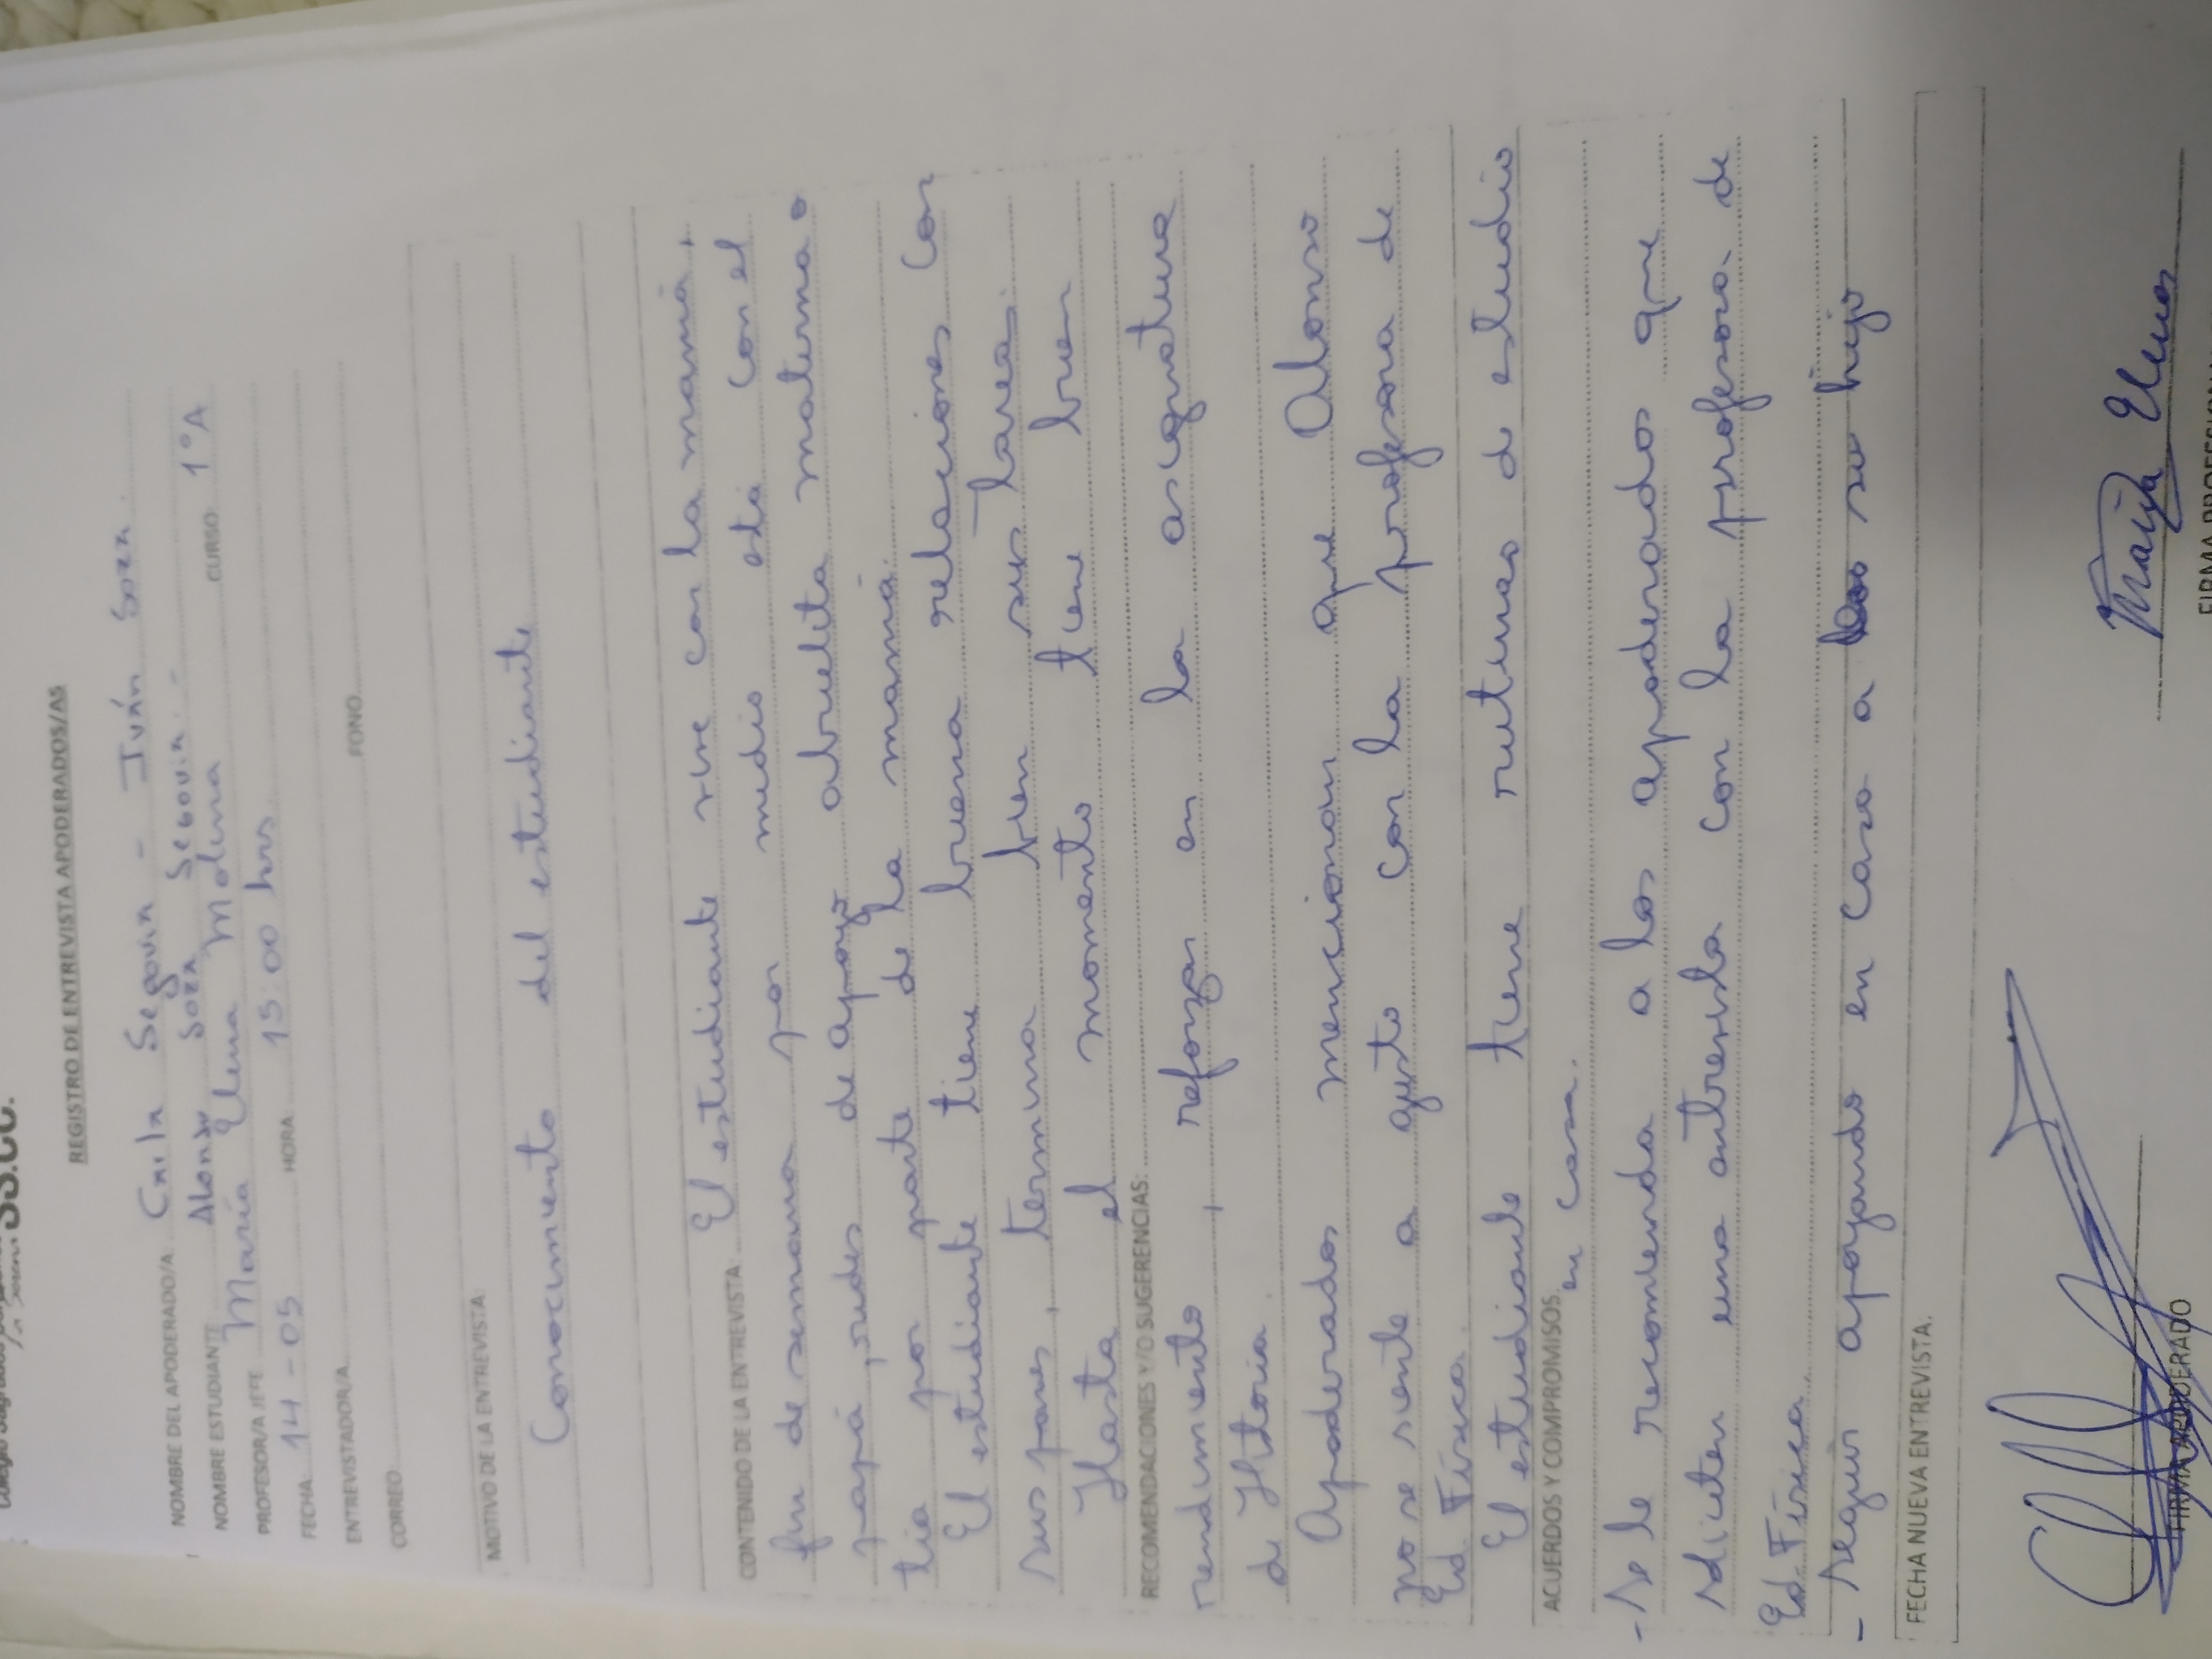 SS.CC.
REGISTRO DE ENTREVISTA APODERADOS/AS
NOMBRE DEL APODERADO/A Carla Segovia - Iván Soza.
NOMBRE ESTUDIANTE Alonso Soza Segovia.- CURSO 1°A
PROFESOR/A JEFE María Elena Molina
FECHA 14-05 HORA 15:00 hrs
ENTREVISTADOR/A FONO
CORREO
MOTIVO DE LA ENTREVISTA
Conocimiento del estudiante
CONTENIDO DE LA ENTREVISTA El estudiante vive con la mamá,
fin de semana por medio está con el
papá, redes de apoyo abuelita materna o
tía por parte de la mamá.
El estudiante tiene buena relaciones con
sus pares, termina bien sus tareas.
Hasta el momento tiene buen
RECOMENDACIONES Y/O SUGERENCIAS:
rendimiento, reforzar en la asignatura
de Historia.
Apoderados mencionan que Alonso
no se siente a gusto con la profesora de
Ed. Física.
El estudiante tiene rutinas de estudio
ACUERDOS Y COMPROMISOS. en casa.
- Se le recomienda a los apoderados que
soliciten una entrevista con la profesora de
Ed. Física.
- Seguir apoyando en casa a su hijo
FECHA NUEVA ENTREVISTA.
María Elena
FIRMA APODERADO